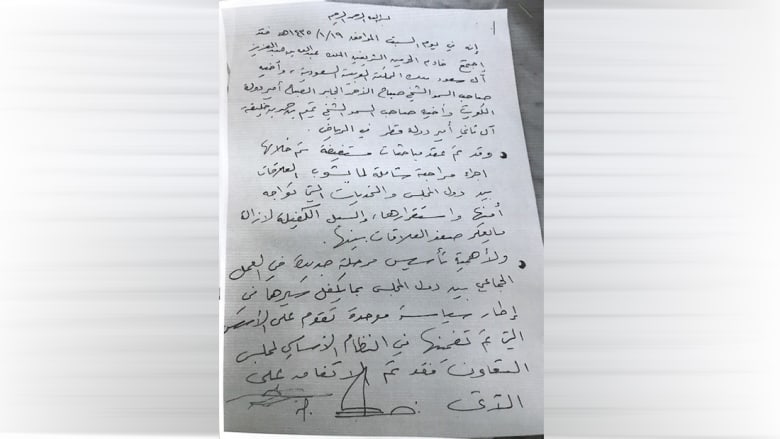 بسم الله الرحمن الرحيم
إنه في يوم السبت الموافق ١٤٣٥/١/١٩هـ فقد
اجتمع خادم الحرمين الشريفين الملك عبدالله بن عبدالعزيز
آل سعود ملك المملكة العربية السعودية، وأخيه
صاحب السمو الشيخ صباح الأحمد الجابر الصباح أمير دولة
الكويت وأخيه صاحب السمو الشيخ تميم بن حمد بن خليفة
آل ثاني أمير دولة قطر في الرياض.
وقد تم عقد مباحثات مستفيضة تم خلالها
اجراء مراجعة شاملة لما يشوب العلاقات
بين دول المجلس والتحديات التي تواجه
أمنها واستقرارها، والسبل الكفيلة لازالة
مايعكر صفو العلاقات بينها.
ولأهمية تأسيس مرحلة جديدة في العمل
الجماعي بين دول المجلس بما يكفل سيرها في
إطار سياسة موحدة تقوم على الأسس
التي تم تضمينها في النظام الأساسي لمجلس
التعاون، فقد تم الاتفاق على
الآتي